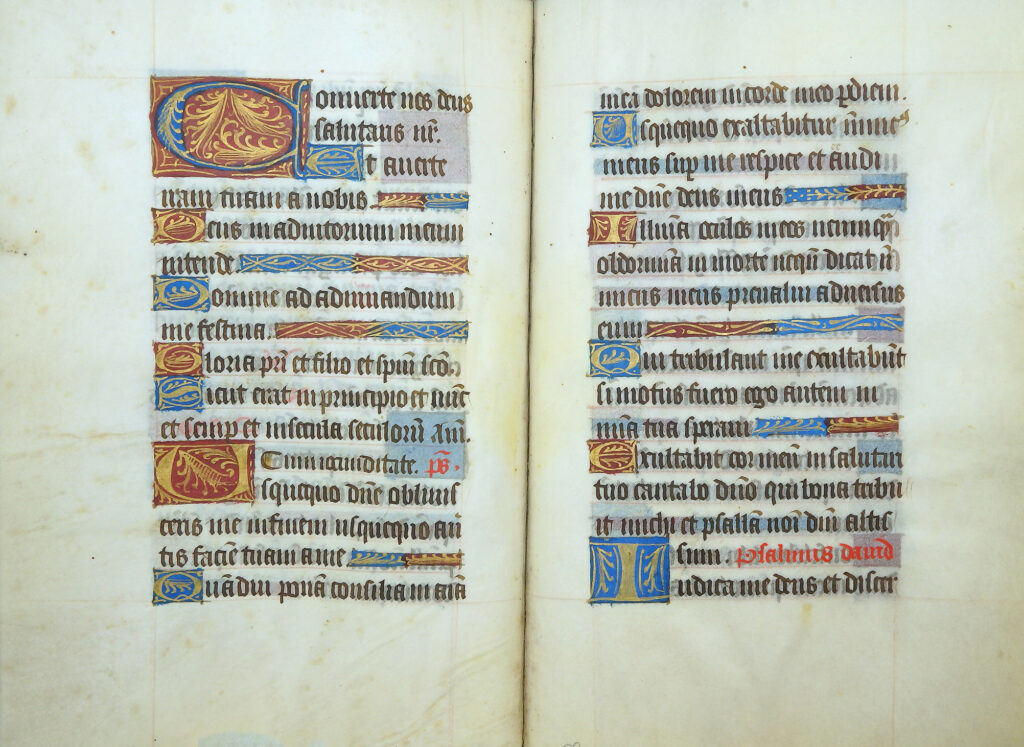 Conuerte nos deus
salutaris nr̄.
Et auerte
iram tuam a nobis.
Deus in adiutorium meum
intende.
Domine ad adiuuandum
me festina.
Gloria pr̄i et filio et spūi scō.
Sicut erat in principio et nūc
et semp et in secula seculorū am̄.
Cum iocunditate. ps̄.
Usquequo dn̄e obliuis
ceris me in finem usquequo auer
tis faciē tuam a me
Quādiu ponā consilia in aīa
mea dolorem in corde meo p diem.
Usquequo exaltabitur inimicꝰ
meus sup me respice et exaudi
me dn̄e deus meus
Illuīa oculos meos ne unq̄
obdormiā in morte nequ dicat in
imicus meus preualui aduersus
eum
Qui tribulant me exultabūt
si motus fuero ego autem in
mīa tua speraui
Exultabit cor meū in salutari
tuo cantabo dn̄o qui bona tribu
it michi et psallā noī dn̄i altis
simi. Psalmus dauid
Iudica me deus et discer